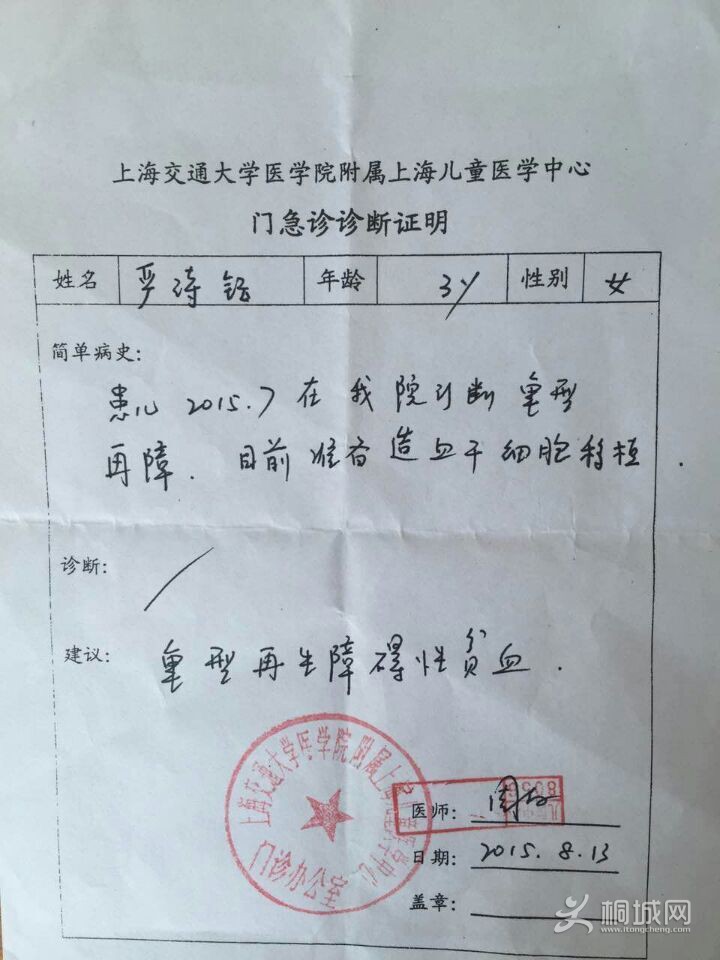 上海交通大学医学院附属上海儿童医学中心
门急诊诊断证明
姓名 严诗 年龄 3y 性别 女
简单病史:
患儿 2015.7 在我院诊断重型
再障. 目前准备造血干细胞移植.
诊断: /
建议: 重型再生障碍性贫血.
上海交通大学医学院附属上海儿童医学中心
门诊办公室
医师: 周
日期: 2015.8.13
盖章:
桐城网
www.itongcheng.com